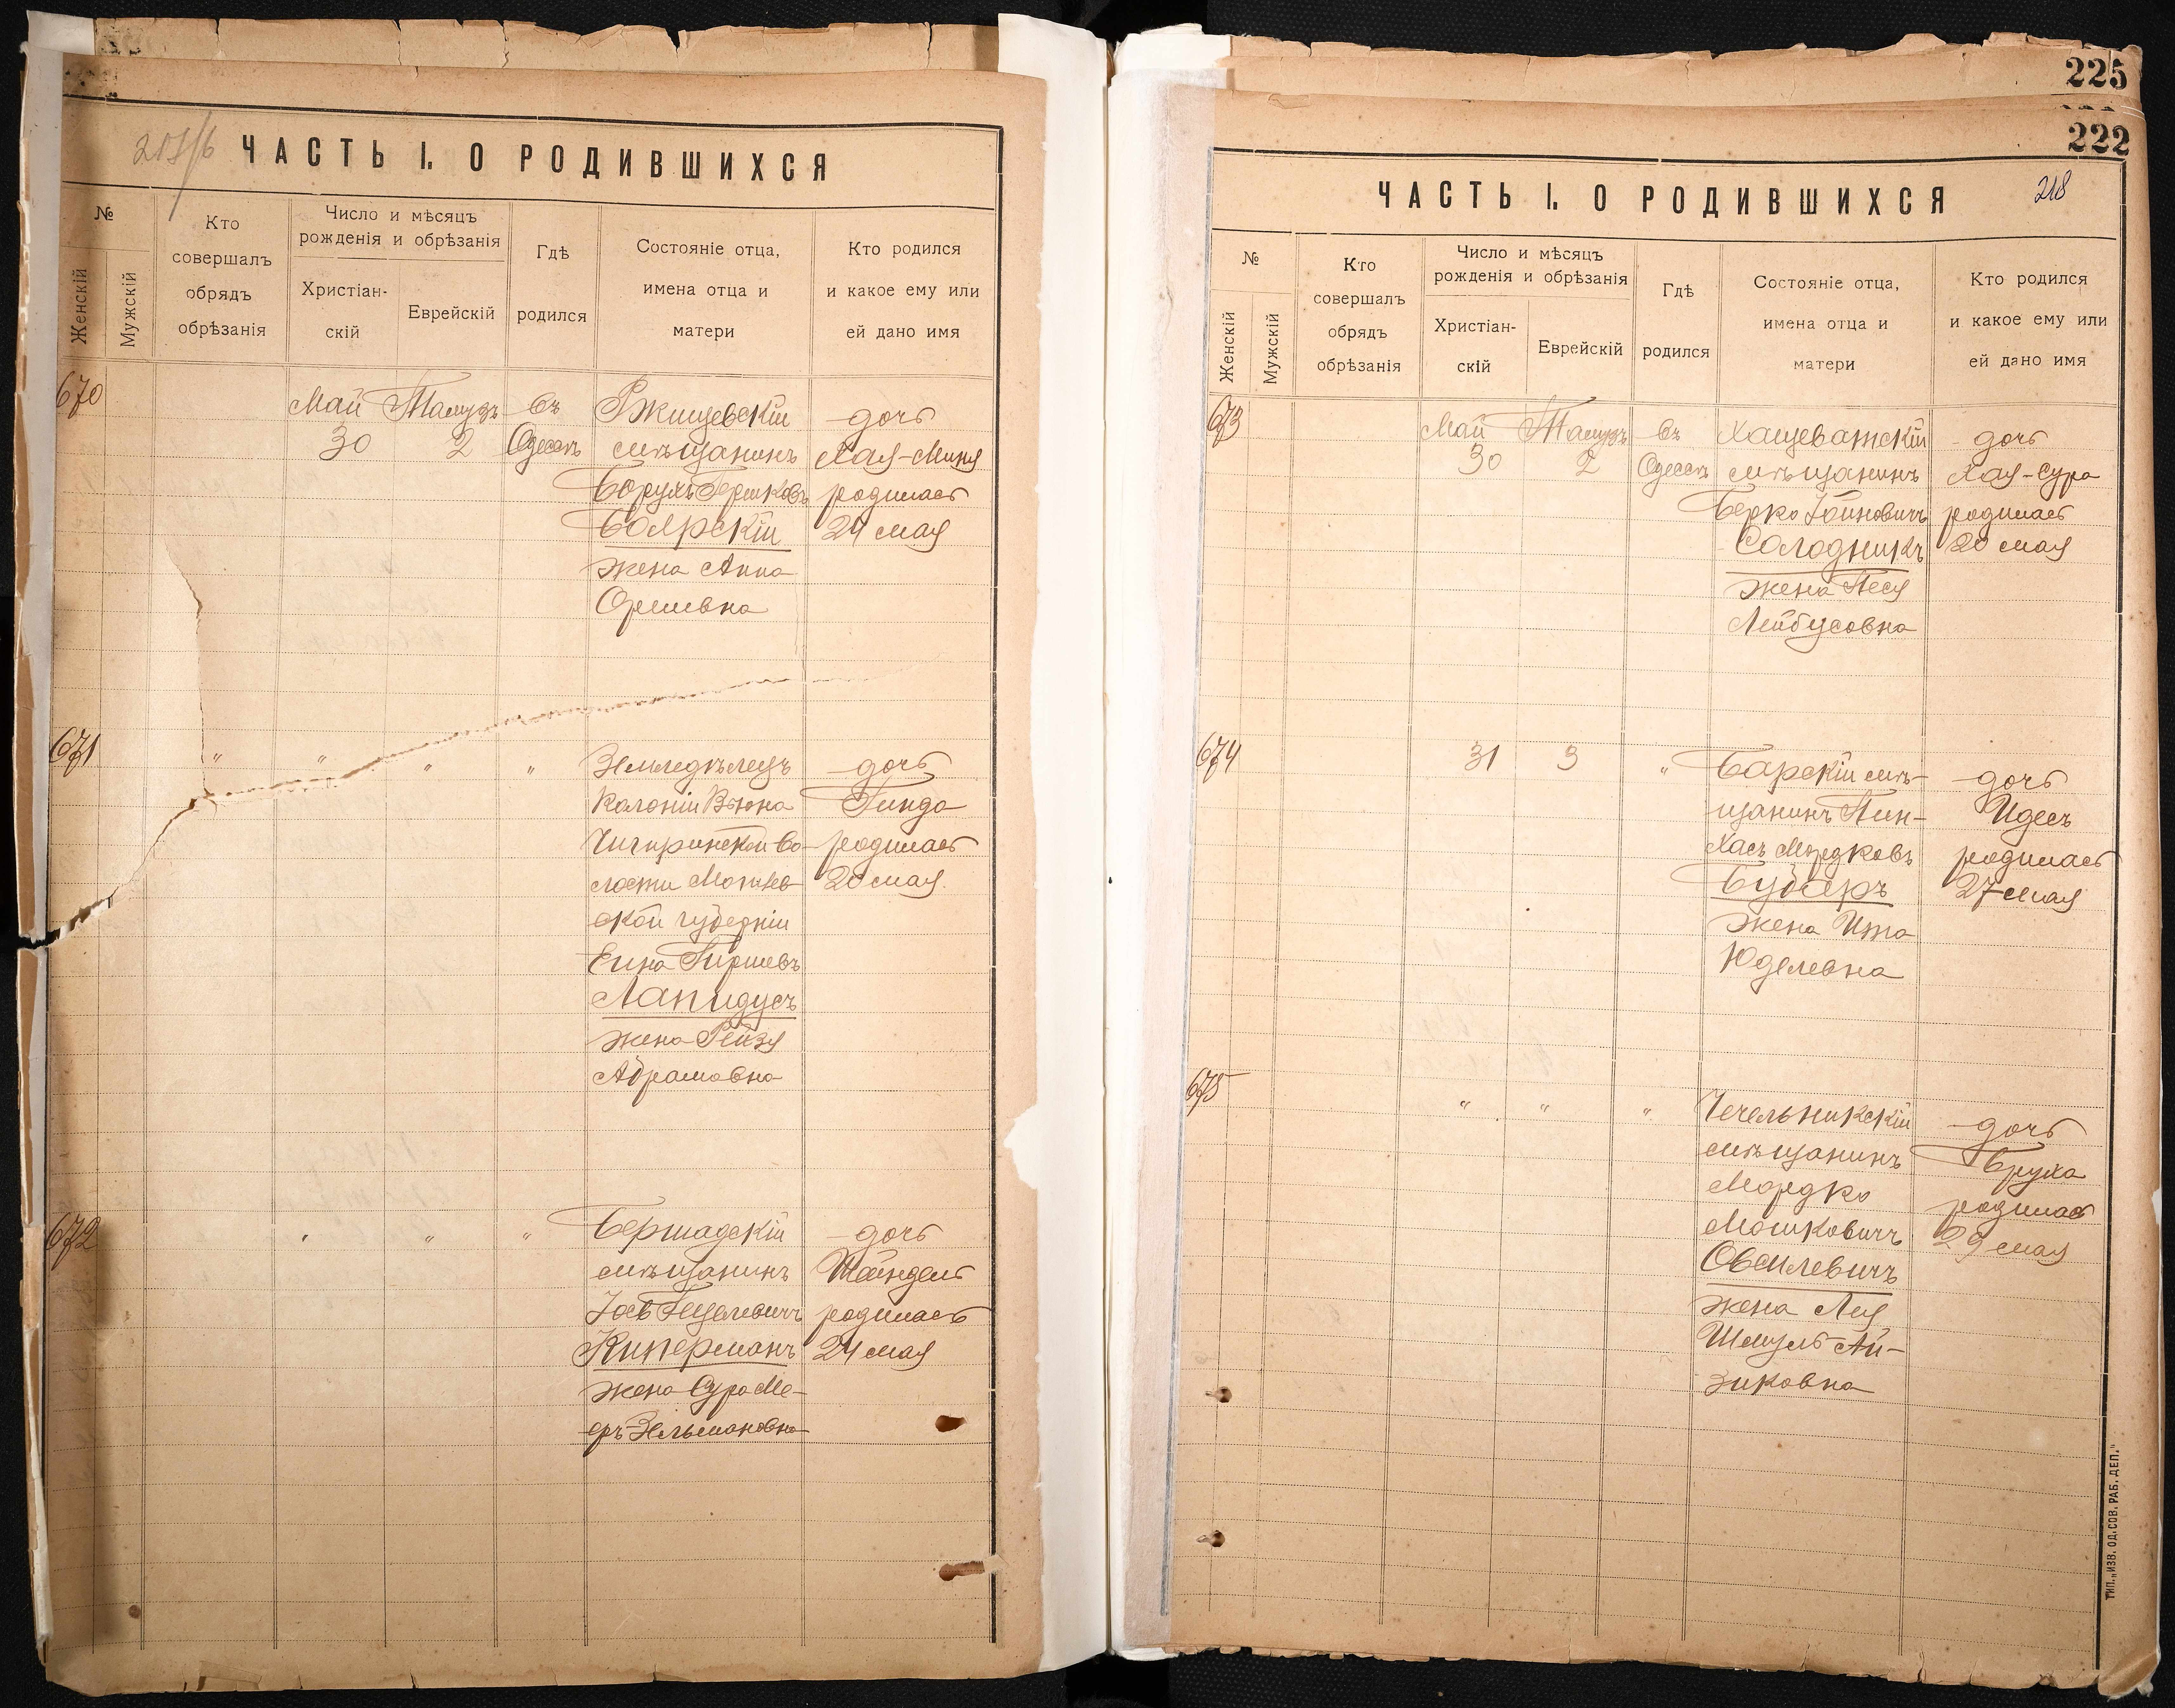 217/б
ЧАСТЬ I. О РОДИВШИХСЯ
№
Женскій
Мужскій
Кто
совершалъ
обрядъ
обрѣзанія
Число и мѣсяцъ
рожденія и обрѣзанія
Христіан-
скій
Еврейскій
Гдѣ
родился
Состояніе отца,
имена отца и
матери
Кто родился
и какое ему или
ей дано имя
670
Май
30
Тамузъ
2
въ
Одессѣ
Ржищевскій
мѣщанинъ
Борухъ Гершковъ
Боярскій
жена Анна
дочь
Хая-Миня
родилась
24 мая
671
" " " "
Земледѣлецъ
Колоніи Вьюна
Чигиринской во-
лости Могилев-
ской губерніи
Гиршевъ
Лапидусъ
жена Рейзя
Абрамовна
дочь
Гинда
родилась
20 мая
672
" " "
Бершадскій
мѣщанинъ
Киперманъ
жена Сура Ме-
еръ-Зельмановна
дочь
Шейндель
родилась
24 мая
225
222
218
ЧАСТЬ I. О РОДИВШИХСЯ
№
Женскій
Мужскій
Кто
совершалъ
обрядъ
обрѣзанія
Число и мѣсяцъ
рожденія и обрѣзанія
Христіан-
скій
Еврейскій
Гдѣ
родился
Состояніе отца,
имена отца и
матери
Кто родился
и какое ему или
ей дано имя
673
Май
30
Тамузъ
2
въ
Одессѣ
Хащеватскій
мѣщанинъ
Берко
Солодникъ
жена Песя
Лейбусовна
дочь
Хая-Сура
родилась
20 мая
674
31
3
"
Барскій мѣ-
щанинъ Пин-
хасъ Мордковъ
жена Ита
Юделевна
дочь
Идесъ
родилась
27 мая
675
" " "
Чечельникскій
мѣщанинъ
Мордко
Мошковичъ
Овсилевичъ
жена Лея
Шмуль Ай-
зиковна
дочь
Бруха
родилась
29 мая
ТИП. „ИЗВ. ОД. СОВ. РАБ. ДЕП."